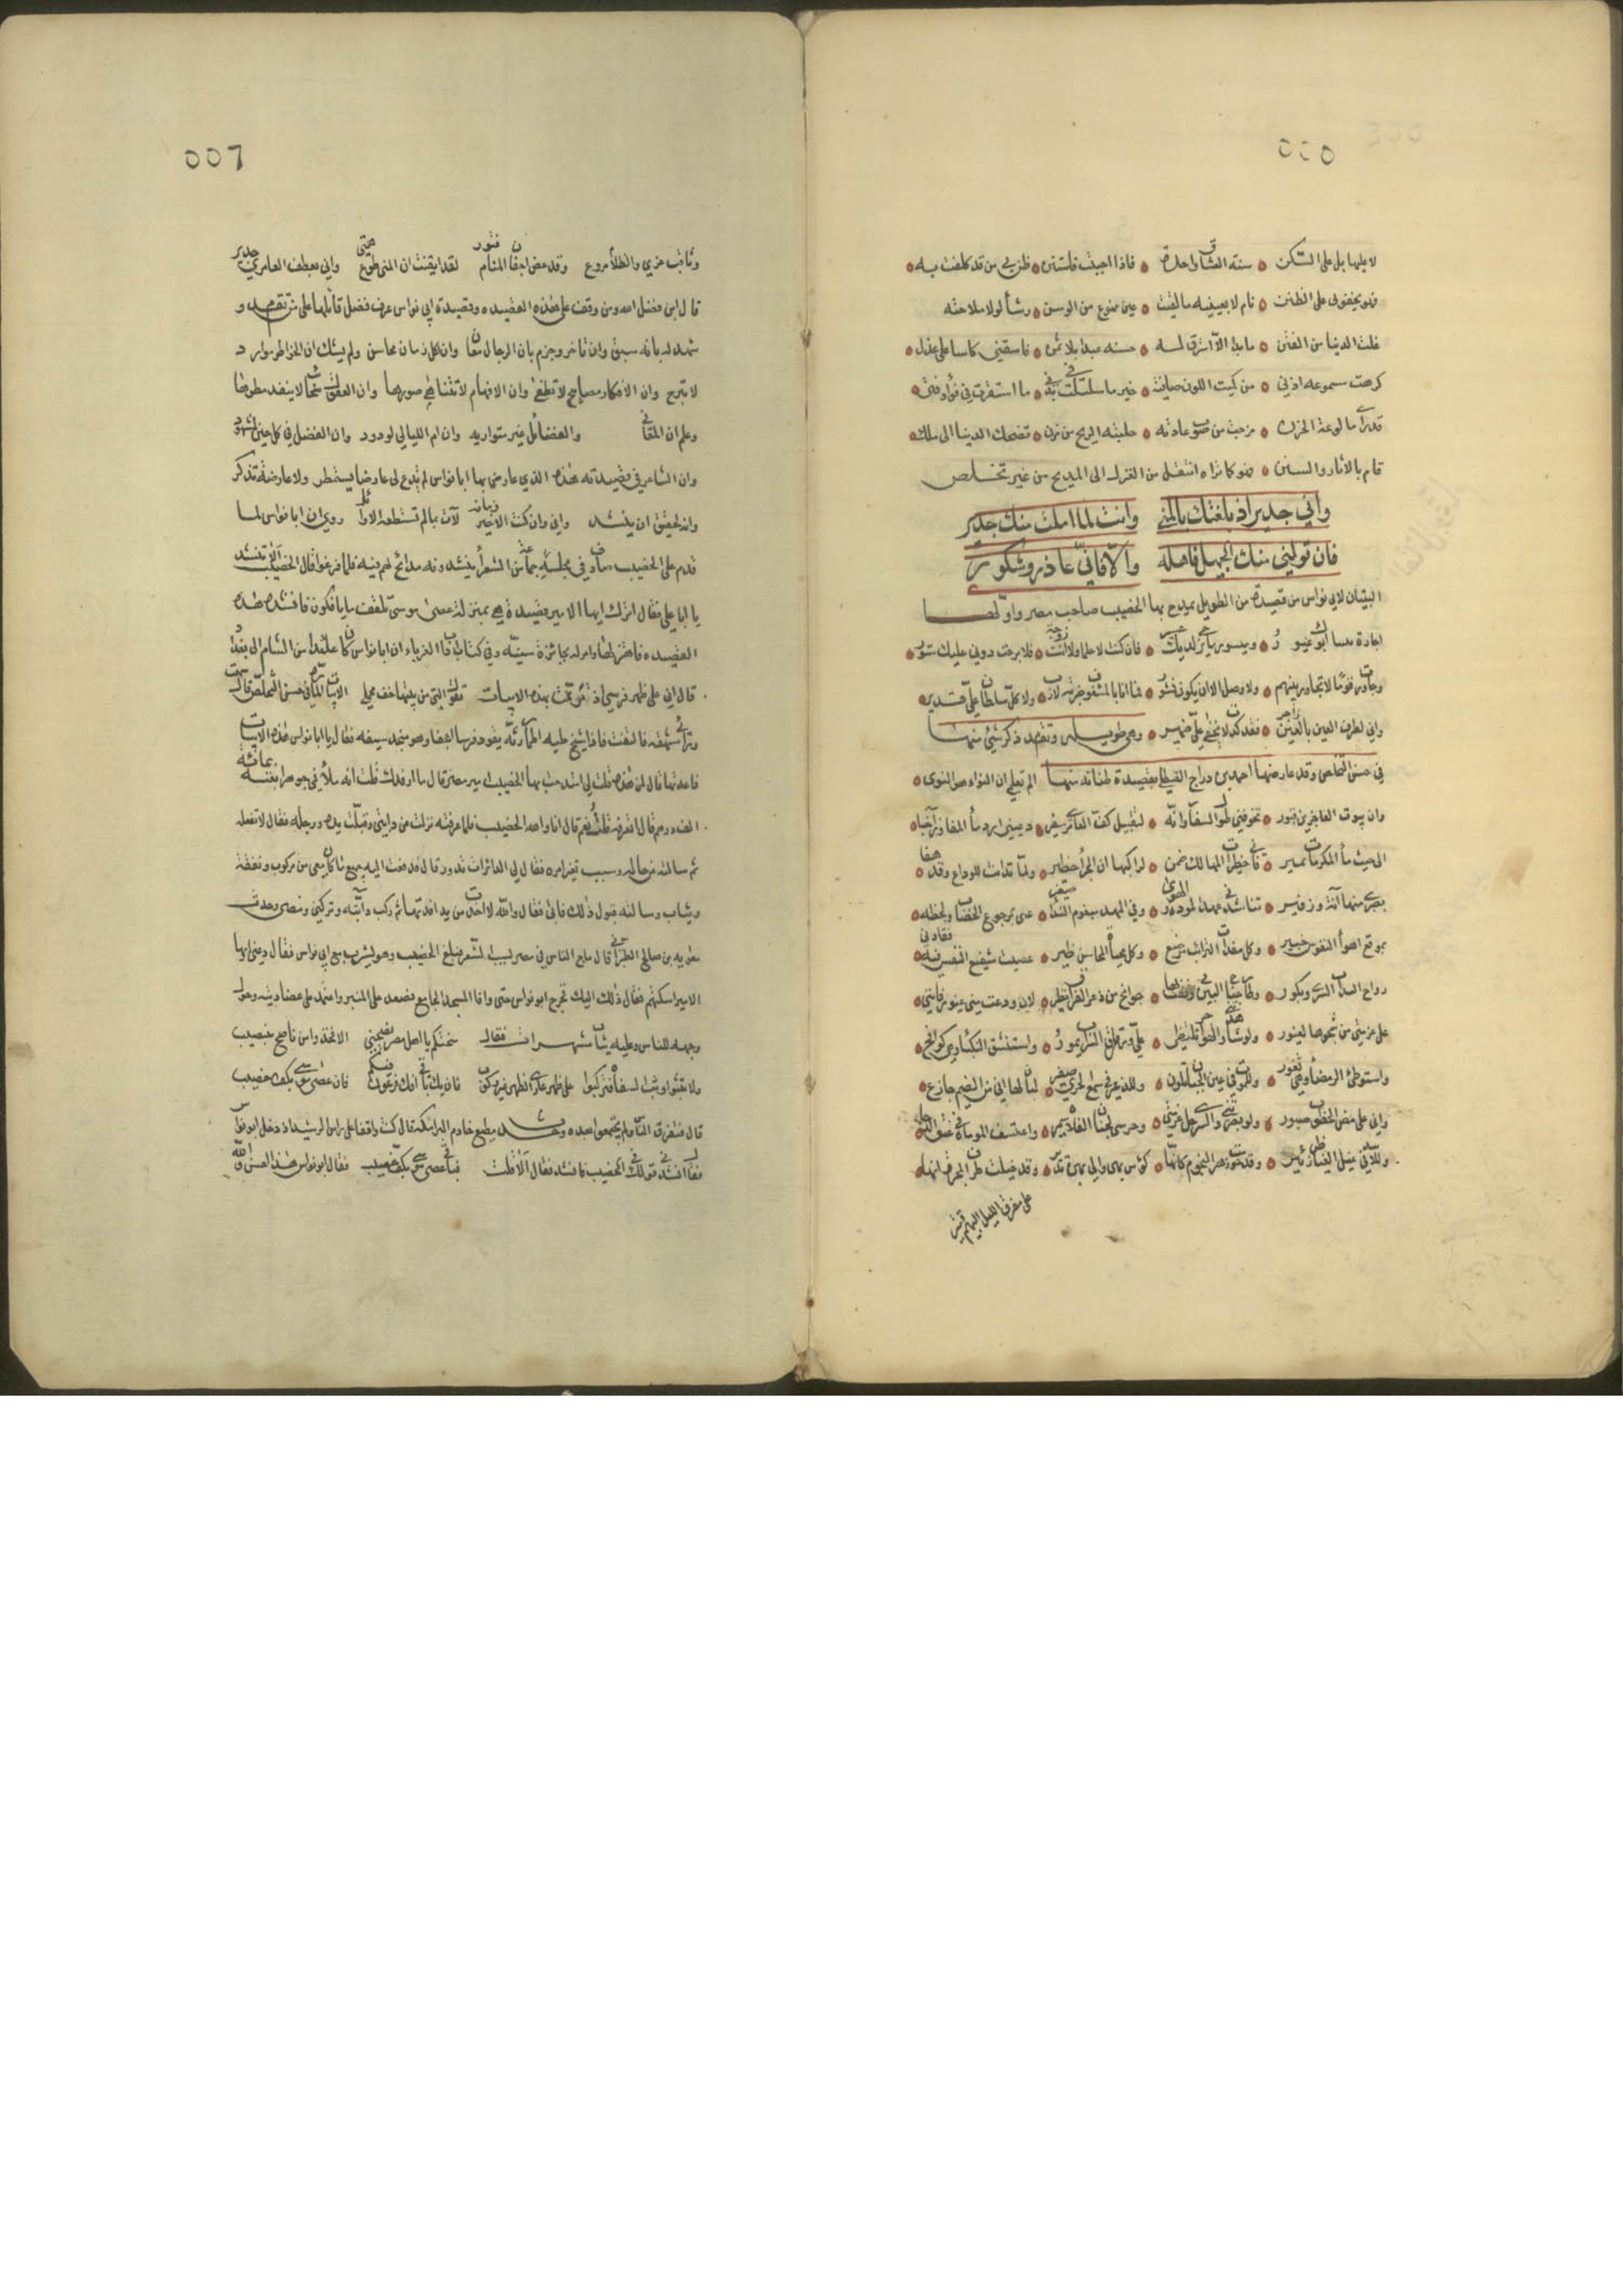 ٥٥٥
لا عليها بل على السكن سنة العشاق واحدة فاذا احببت فاستنن ظن بي من قد كلفت به
فهو يجفوني على الظنن نام لا يعنيه ما لقيت عين ممنوع من الوسن رشأ لولا ملاحته
خلت الدنيا من الفتن ما بدا الا استرق له حسنه عبدا بلا ثمن فاسقني كاسا على عذل
كرهت مسموعه اذني من كميت اللون صافية خير ما سلسلت في بدني ما استقرت في فؤاد فتى
فدرى ما لوعة الحزن مزجت من صوب غادية حلبته الريح من مزن تضحك الدنيا الى ملك
قام بالاثار والسنن فهو كما تراه انتقل من الغزل الى المديح من غير تخلص
واني جدير اذ بلغتك بالمنى وانت لما املت منك جدير
فان تولني منك الجميل فاهله والا فاني عاذر وشكور
البيتان لابي نواس من قصيدة من الطويل يمدح بها الخصيب صاحب مصر واولها
اجارة بيتينا ابوك غيور وميسور ما يرجى لديك عسير فان كنت لا خلا ولا انت زوجة فلا برحت دوني عليك ستور
وجاورت قوما لا تجاور بينهم ولا وصل الا ان يكون نشور فما انا بالمشغوف ضربة لازب ولا كل سلطان علي قدير
واني لطرف العين بالعين زاجر فقد كدت لا يخفى علي ضمير وهي طويلة وتقدم ذكر شيئ منها
في حسن التخلص وقد عارضها احمد بن دراج القسطلي بقصيدة طنانة منها الم تعلمي ان الثواء هو النوى
وان بيوت العاجزين قبور تخوفني طول السفار وانه لتقبيل كف العامري سفير دعيني ارد ماء المفاوز آجنا
الى حيث ماء المكرمات نمير فان خطيرات المهالك ضمن لراكبها ان الجزاء خطير ولما تدانت للوداع وقد هفا
بصبري منها آنة وزفير تناشدني عهد المودة والهوى وفي المهد مبغوم النداء صغير عيي بمرجوع الخطاب ولحظه
بموقع اهواء النفوس خبير وكل مفداة الترائب مرضع وكل محياة المحاسن ظير عصيت شفيع النفس فيه فقادني
رواح لتدآب السرى وبكور وطار جناح البين بي وهفت بها جوانح من ذعر الفراق تطير لان ودعت مني غيورا فانني
على عزمتي من شجوها لغيور ولو شاهدتني والهواجر تلتظي علي ورقراق السراب يمور واستنشق النكباء وهي لوافح
واستوطئ الرمضاء وهي تفور وللموت في عين الجبان تلون وللذعر في سمع الجريء صفير لبان لها اني من الضيم جازع
واني على مضض الخطوب صبور ولو بصرت بي والسرى جل عزمتي وجرسي لجنان الفلاة سمير واعتسف الموماة في غسق الدجى
وللاسد في غيل الغياض زئير وقد حومت زهر النجوم كانها كؤوس مها والى بهن مدير وقد خيلت طرق المجرة انها
على مفرق الليل البهيم قتير
٥٥٦
وثاقب عزمي والظلام مروع وقد غض اجفان المنام فتور لقد ايقنت ان المنى طوع همتي واني بعطف العامري جدير
قال ابن فضل الله ومن وقف على هذه القصيدة وقصيدة ابي نواس عرف فضل قائلها على من تقدمه و
شهد له بانه سبق وان تاخر وجزم بان الرجال معادن وان لكل زمان محاسن ولم يشك ان الخواطر موارد
لا تبرح وان الافكار مصابيح لا تطفئ وان الافهام لا تتناهى صورها وان العقول سحائب لا ينفد مطرها
وعلم ان المعاني والفضائل غير متواريه وان ام الليالي لولود وان الفضل في كل حين مشهود
وان الشاعر في قصيدته هذه الذي عارض بها ابا نواس لم يدع لى عارضا يستمطر ولا عارضة تذكر
وانه لحقيق ان ينشد واني وان كنت الاخير زمانه لآت بما لم تستطعه الاوائل روي ان ابا نواس لما
قدم على الخصيب صادف في مجلسه جماعة من الشعراء ينشدونه مدائح لهم فيه فلما فرغوا قال الخصيب الا تنشد
يا ابا علي فقال انشدك ايها الامير قصيدة هي بمنزلة عصى موسى تلقف ما يافكون فانشده هذه
القصيدة فاهتز لها وامر له بجائزة سنية وفي كتاب ادب الغرباء ان ابا نواس كان عائدا من الشام الى بغداد
قال اني على ظهر فرسي اذ ترنمت بهذه الابيات تقول التي من بيتها خف محملي الابيات المارة في حسن التخلص قال سمعت
ورائي شهقة فالتفت فاذا شيخ عليه اطمار رثة يقود فرسا اعجفا وهو منجد سيفه فقال يا ابا نواس هذه الابيات
فاعدتها قال لمن هذه قلت لي امتدحت بها الخصيب امير مصر قال ما ارفدك قلت انه ملأ في جوهرا بقيمته بمائة
الف درهم قال اتعرفه قلت نعم قال انا والله الخصيب فلما عرفته نزلت من دابتي وقبلت يده ورجله فقال لا تفعل
ثم سالته عن حاله وسبب تغير امره فقال لي الدائرات تدور قال فدفعت اليه جميع ما كان معي من مركوب ونفقة
وثياب وسالته قبول ذلك فابى فقال والله لا اخذت من يد افدتها ثم ركب دابته وتركني ومضى وحدث
معوية بن صالح الطبراني قال ماج الناس في مصر بسبب السعر فبلغ الخصيب وهو يشرب مع ابي نواس فقال دعني ايها
الامير اسكتهم فقال ذلك اليك فخرج ابو نواس حتى وافا المسجد الجامع فصعد على المنبر واعتمد على عضادتيه وحول
وجهه للناس وعليه ثياب مشهرات فقال منحتكم يا اهل مصر نصيحتي الا فخذوا من ناصح بنصيب
ولا تثبوا وثب السفاه فتركبوا على ظهر عاري الظهر غير ركوب فان يك باقي افك فرعون فيكم فان عصى موسى بكف خصيب
قال فتفرق الناس ولم يجتمعوا بعده وحدث مطيع خادم البرامكة قال كنت واقفا على راس الرشيد اذ دخل ابو نواس
فقال انشدني قولك في الخصيب فانشده فقال الا قلت فباقي عصى موسى بكف خصيب فقال ابو نواس هذا احسن والله